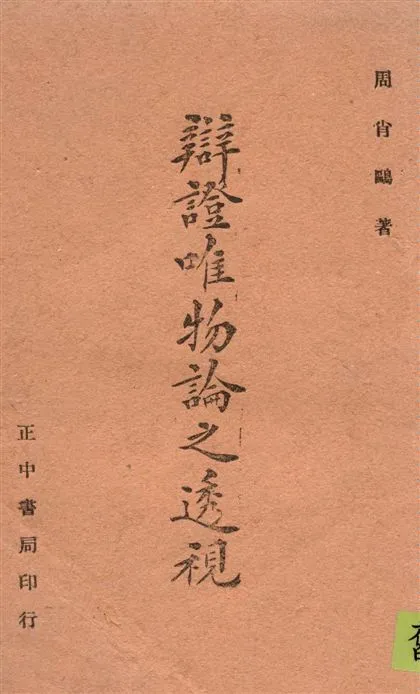 周肯鷗著
辯證唯物論之透視
正中書局印行